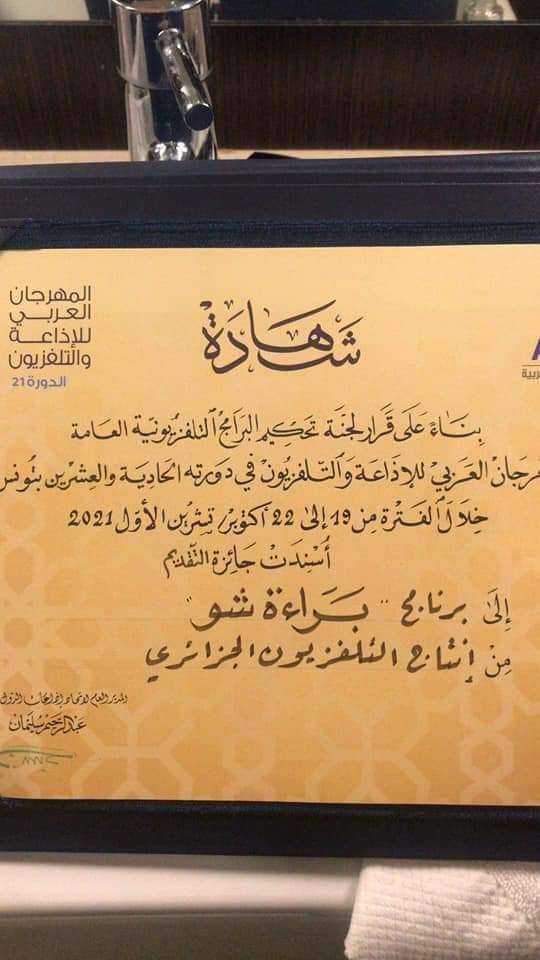 المهرجان
العربي
للإذاعة
والتلفزيون
الدورة 21
شهادة
بناءً على قرار لجنة تحكيم البرامج التلفزيونية العامة
العربي للإذاعة والتلفزيون في دورته الحادية والعشرين بتونس
خلال الفترة من 19 إلى 22 أكتوبر/ تشرين الأول 2021
أسندت جائزة التقديم
إلى برنامج "براءة شو"
من إنتاج التلفزيون الجزائري
المدير العام لاتحاد إذاعات الدول
عبد الرحيم سليمان